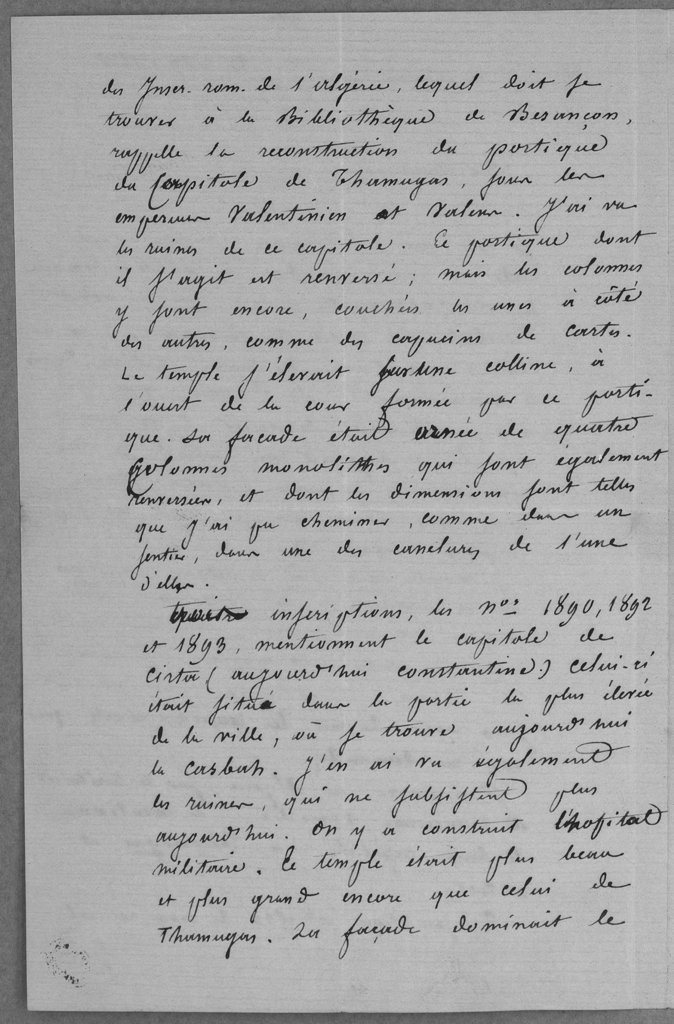 des Inser. rom. de l'algérie, lequel doit se
trouver à la Bibliothèque de Besançon,
rappelle la reconstruction du portique
du Capitole de Thamugas, sous les
empereurs Valentinien et Valens. J'ai vu
les ruines de ce capitole. Le portique dont
il s'agit est renversé ; mais les colonnes
y sont encore, couchées les unes à côté
des autres, comme des capucins de cartes.
Le temple s'élevait sur une colline, à
l'ouest de la cour formée par ce porti-
que. La façade était ornée de quatre
colonnes monolithes qui sont également
renversées, et dont les dimensions sont telles
que j'ai pu cheminer, comme dans un
sentier, dans une des canelures de l'une
d'elles.
inscriptions, les nos 1890, 1892
et 1893, mentionnent le capitole de
Cirta (aujourd'hui constantine.) Celui-ci
était situé dans la partie la plus élevée
de la ville, où se trouve aujourd'hui
la casbah. J'en ai vu également
les ruines, qui ne subsistent plus
aujourd'hui. On y a construit l'hopital
militaire. Ce temple était plus beau
et plus grand encore que celui de
Thamugas. La façade dominait le